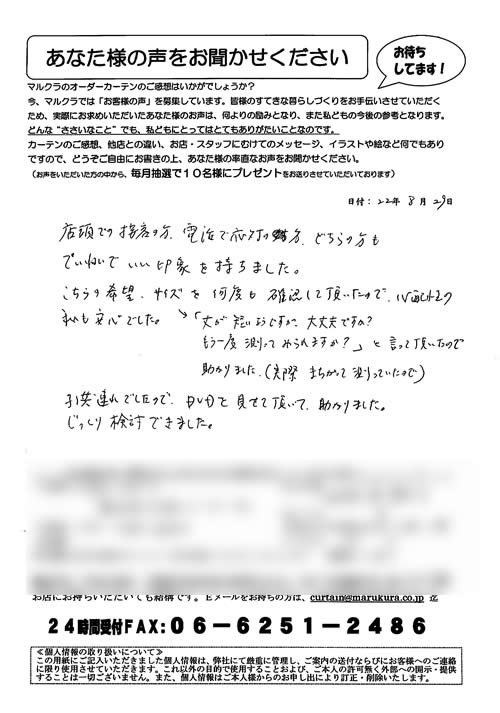 あなた様の声をお聞かせください
お待ち
してます!
マルクラのオーダーカーテンのご感想はいかがでしょうか?
今、マルクラでは「お客様の声」を募集しています。皆様のすてきな暮らしづくりをお手伝いさせていただく
ため、実際にお求めいただいたあなた様のお声は、何よりの励みとなり、また私どもの今後の参考となります。
どんな“ささいなこと”でも、私どもにとってはとてもありがたいことなのです。
カーテンのご感想、他店との違い、お店・スタッフにむけてのメッセージ、イラストや絵など何でもあり
ですので、どうぞご自由にお書きの上、あなた様の率直なお声をお聞かせください。
(お声をいただいた方の中から、毎月抽選で10名様にプレゼントをお送りさせていただいております)
日付:22年 8月 29日
店頭での接客の方、電話で応対の方、どちらの方も
でいねいで いい印象を持ちました。
こちらの希望、サイズを何度も確認して頂いたので、
私も安心でした。
「丈が短いようですが、大丈夫ですか?
もう一度測ってみられますか?」と言って頂いたので
助かりました。(実際 まちがって測っていたので)
お子様連れでしたので、DVDを見せて頂いて、助かりました。
じっくり検討できました。
お店にお持ちいただいても結構です。Eメールをお持ちの方は、curtain@marukura.co.jp 迄
24時間受付FAX:06-6251-2486
≪個人情報の取り扱いについて≫
この用紙にご記入いただきました個人情報は、弊社にて厳重に管理し、ご案内の送付ならびにお客様へのご連絡
に限り使用させていただきます。これ以外の目的で使用することおよび、ご本人の許可無く外部への開示・提供
することは一切ございません。また、個人情報はご本人様からのお申し出により訂正・削除いたします。